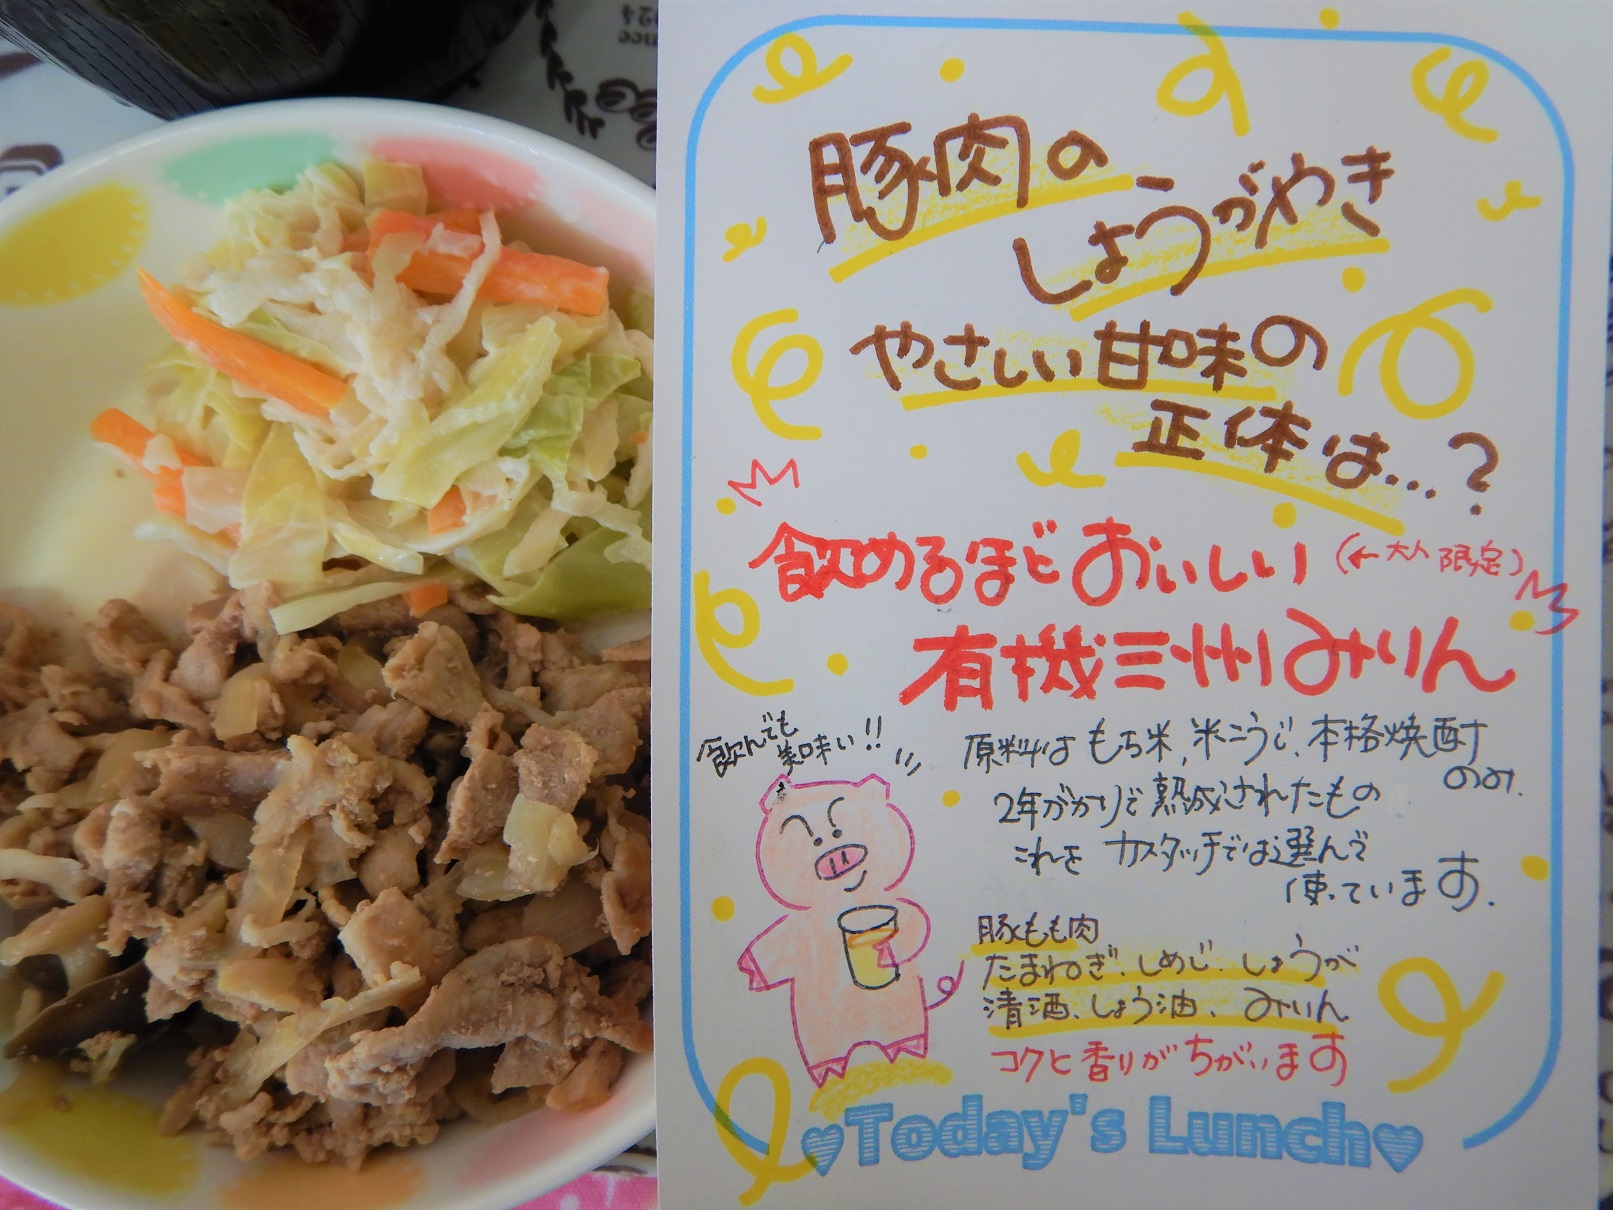 豚肉の
しょうがやき
やさしい甘味の
正体は…?
飲めるほどおいしい (←大人限定)
有機三州みりん
飲んでも
美味い!!
原料は もち米,米こうじ、本格焼酎
のみ.
2年がかりで熟成されたもの
これを カスタッチでは選んで
使っています.
豚もも肉
たまねぎ、しめじ、しょうが
清酒、しょう油、みりん
コクと香りがちがいます
♥Today's Lunch♥